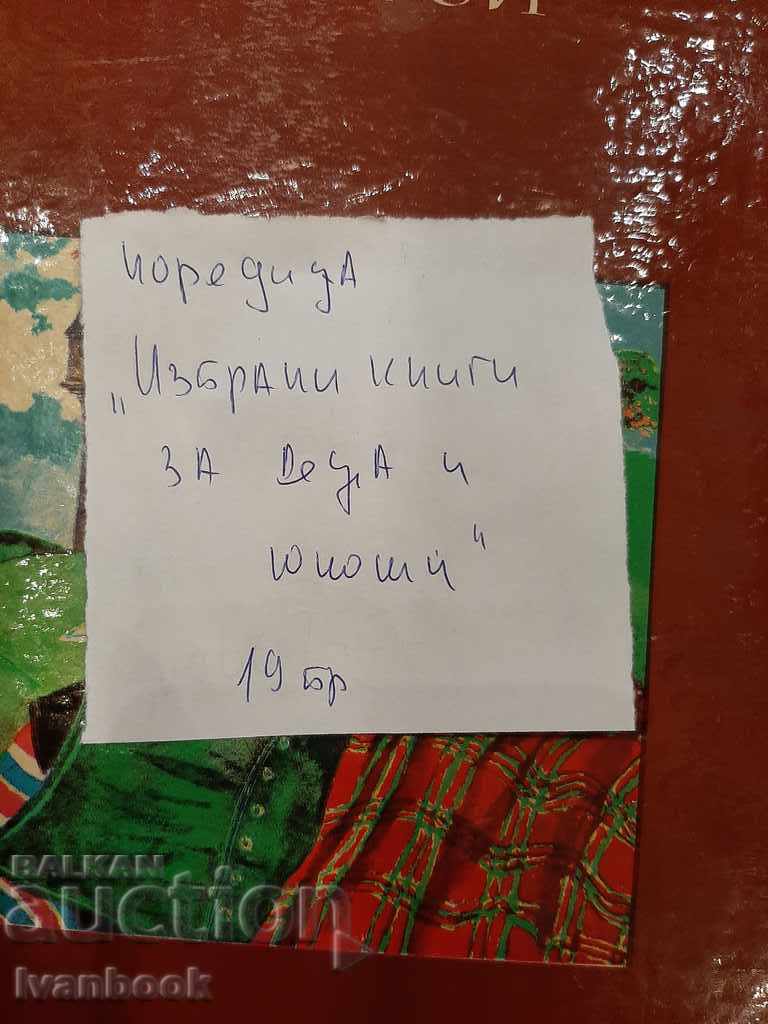 поредица
„Избрани книги
за деца и
юноши"
19 бр
BALKAN
auction
Ivanbook